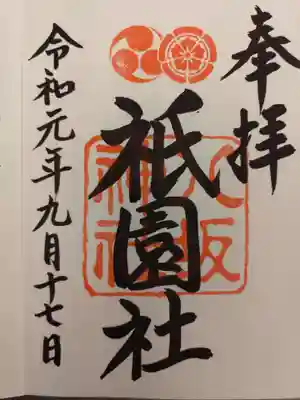 奉拝
八坂
神社
祇園社
令和元年九月十七日